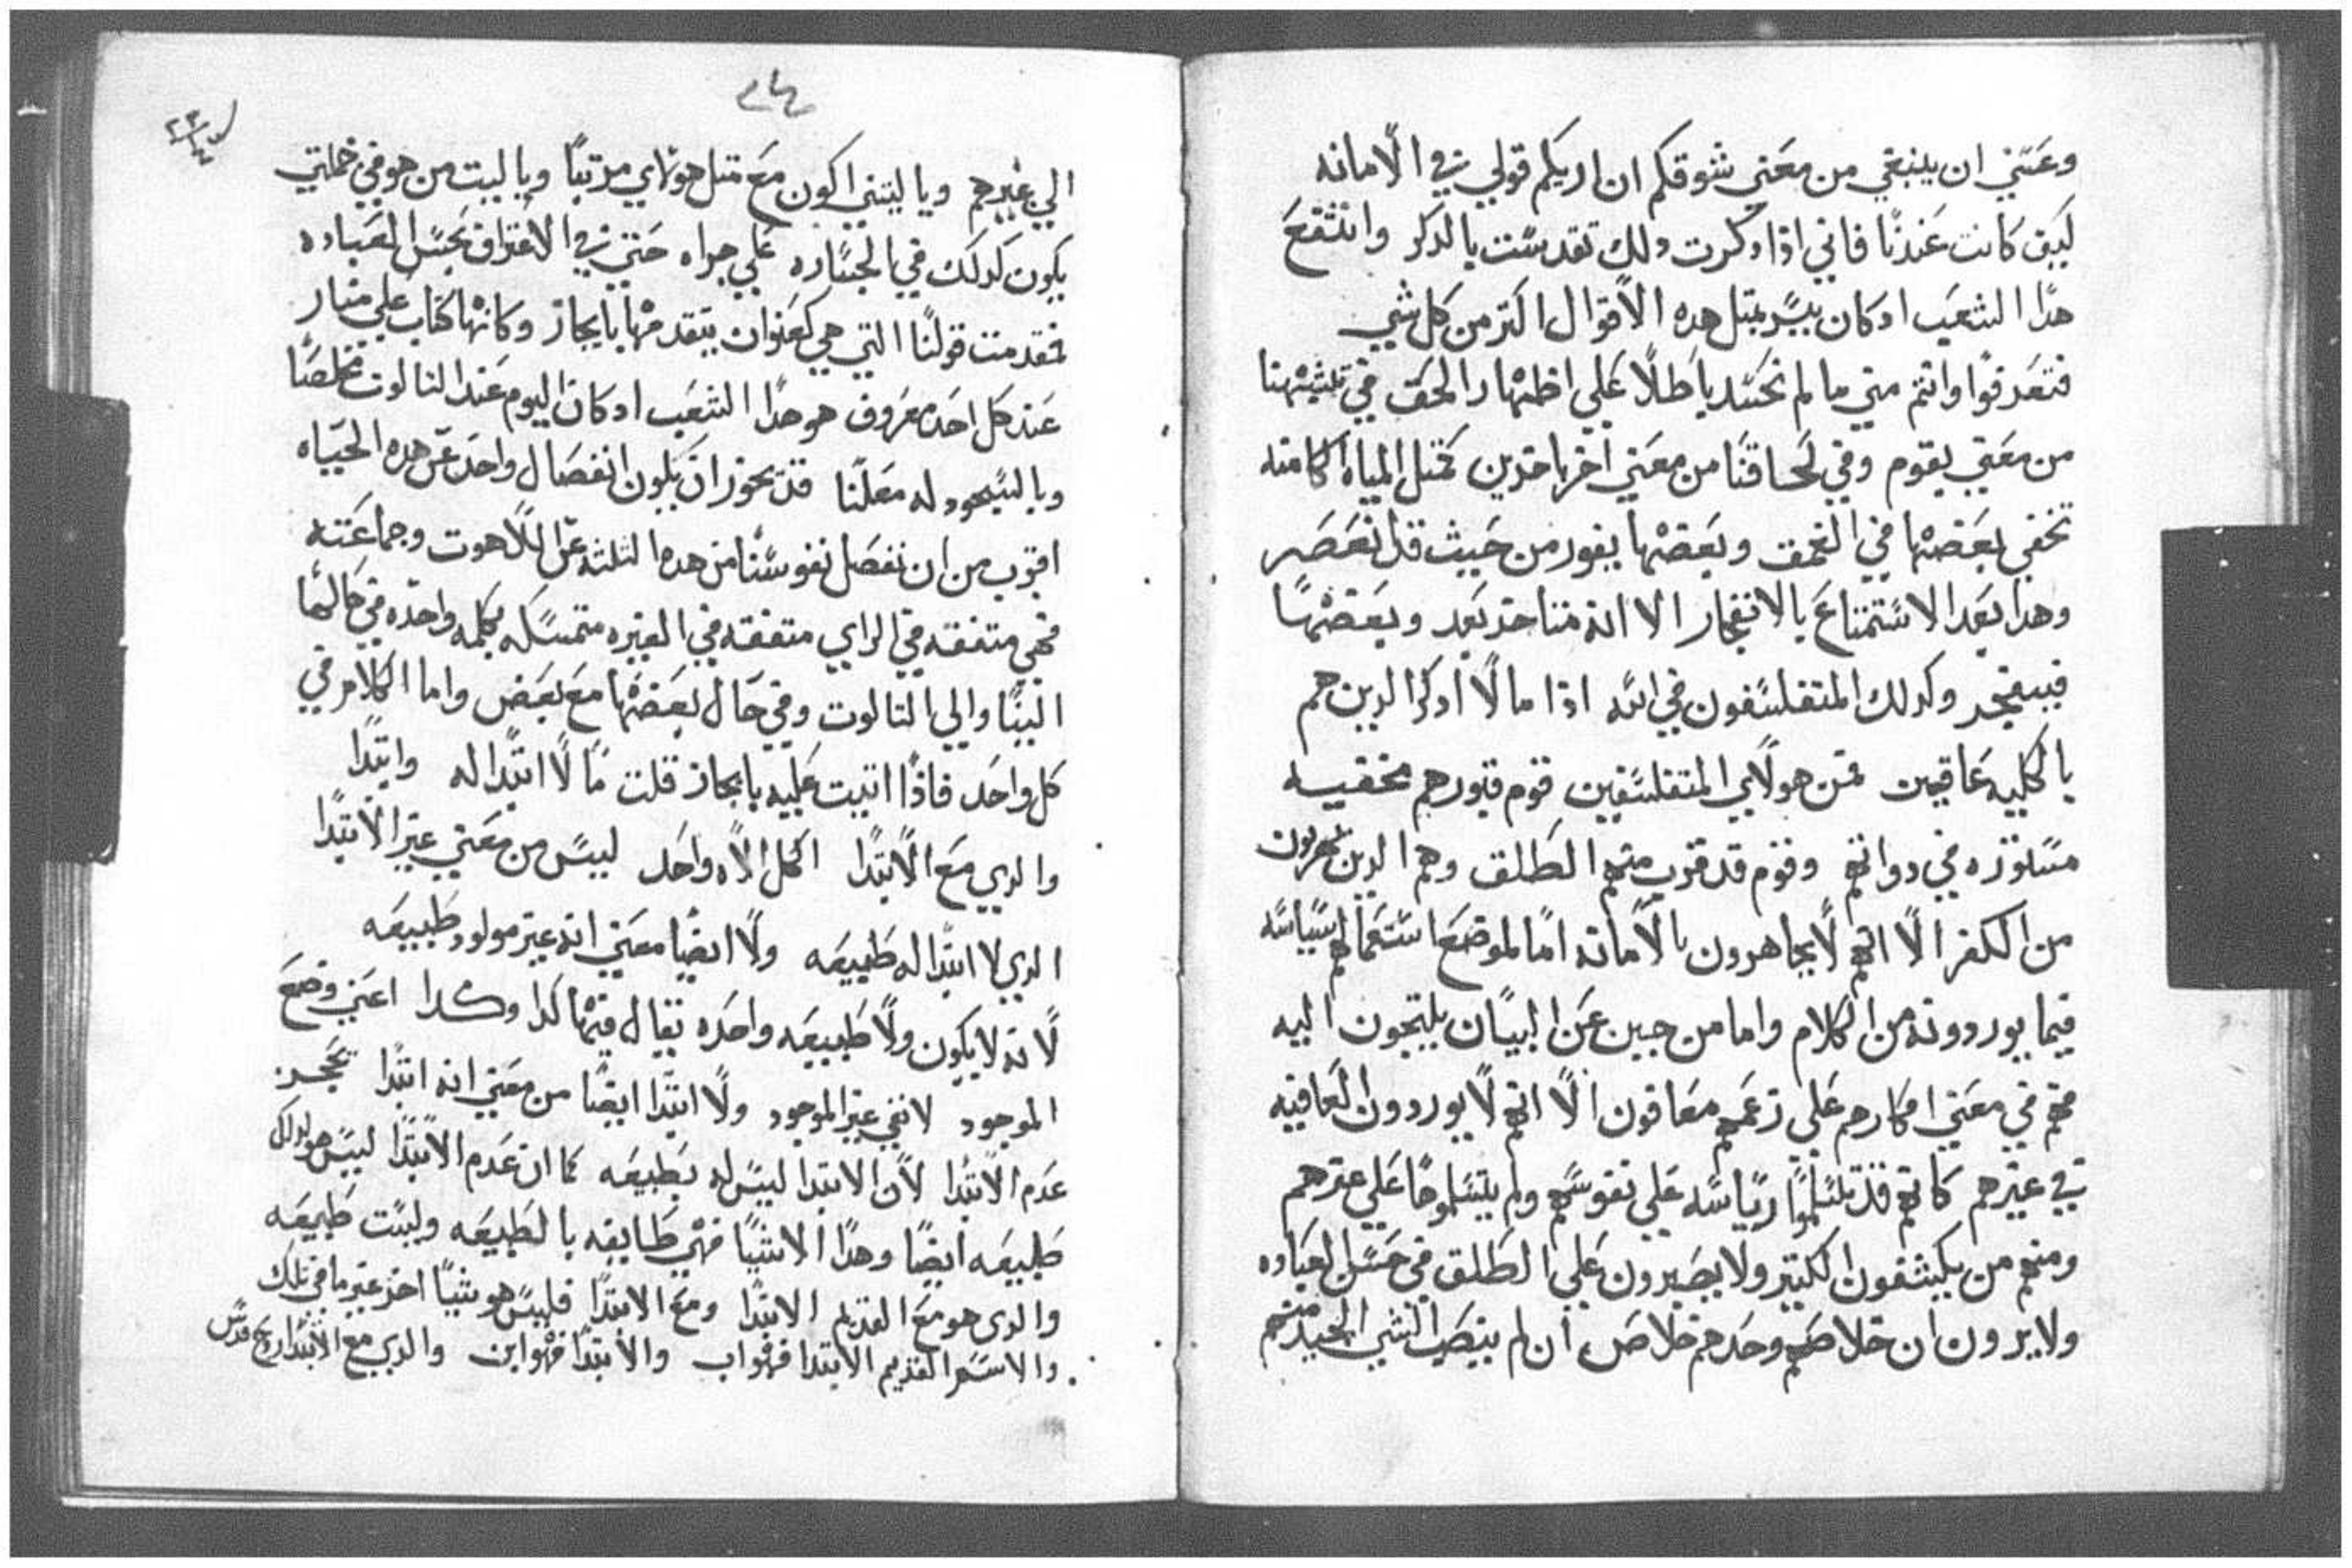 وعَسَي ان ينبغي من معَني شوقكم ان اريكم قولي في الامانه
كيف كانت عَندنا فاني اذا دكرت دلك تقدست بالدكر وانتفعَ
هدا الشعَب ادكان يسر بمتل هده الاقوال اكتر من كل شي
فتعَرفوا وانتم مني ما لم نحسد باطلا عَلي اظهار الحَق في
من معَني يقوم وفي من معَني اخر اخدين كمتل المياه الكامنه
تخفي بعَضها في العَمق وبعَضها يفور من حَيث قد انعَصَر
وهدا بعَد الاستمتاعَ بالانفجار الا انه متناحد بعَد وبعَضها
فينفجر وكدلك المتفلسفون في الله اذا ما لا ادكر الدين هم
بالكليه عَاقيين فمن هولاي المتفلسفين قوم قبورهم مخفيه
مستوره في دواتهم وقوم قد قرب منهم الطلق وهم الدين يهربون
من الكفر الا انهم لا يجاهرون بالامانه اما لموضعَ استعَمالهم سياسه
فيما يوردونه من الكلام واما من جبن عَن البيان يلتجون اليه
فهم في معَني افكارهم عَلي زعَمهم معَافون الا انهم لا يوردون العَافيه
في غيرهم كانهم قد تسلموا رياسه عَلي نفوسهم ولم يتسلموها عَلي غيرهم
ومنهم من يكشفون الكنز ولا يصَبرون عَلي الطلق في حَسن العَباده
ولا يرون ان خلاصَهم وحَدهم خلاصَ ان لم ينصَب الشي الجيد منهم
الي غيرهم ويا ليتني اكون معَ متل هولاي مرتبا ويا ليت من هو في خملتي
يكون كدلك في الجساره عَلي جراه حَتي في الاعَتراف بحَسن العَباده
فقد مت قولنا التي هي كعَنوان يتقدمها بايجاز وكانها كتاب عَلي منار
عَند كل احَد معَروف هو هدا الشعَب ادكان اليوم عَند التالوت مخلصَا
وبالسجود له معَلنا قد يجوز ان يكون انفصَال واحَد عَن هده الحَياه
اقرب من ان نفصَل نفوسنا من هده التلته عَن اللاهوت وجماعَته
فهي متفقه في الراي متفقه في الغيره متمسكه بكلمه واحَده في حَالها
الينا والي التالوت وفي حَال بعَضها معَ بعَض واما الكلام في
كل واحَد فاذا اتيت عَليه بايجاز قلت ما لا ابتدا له وابتدا
والدي معَ الابتدا اكمل الاه واحَد ليس من معَني غير الابتدا
الدي لا ابتدا له طبيعَه ولا ايضا معَني انه غير مولود طبيعَه
لانه لا يكون ولا طبيعَه واحَده يقال فيها كدا وكدا اعَني وضعَ
الموجود لا نفي غير الموجود ولا ابتدا ايضا من معَني انه ابتدا يحَجز
عَدم الابتدا لان الابتدا ليس له بطبيعَه كما ان عَدم الابتدا ليس هو لدلك
طبيعَه ايضا وهدا الاشيا فهي طايفه بالطبيعَه وليست طبيعَه
والدي هو معَ القديم الابتدا ومعَ الابتدا فليس هو شيا اخر غير ما في تلك
والاسم القديم الابتدا فهو اب والابتدا فهو ابن والدي مع الابتدا روح قدس